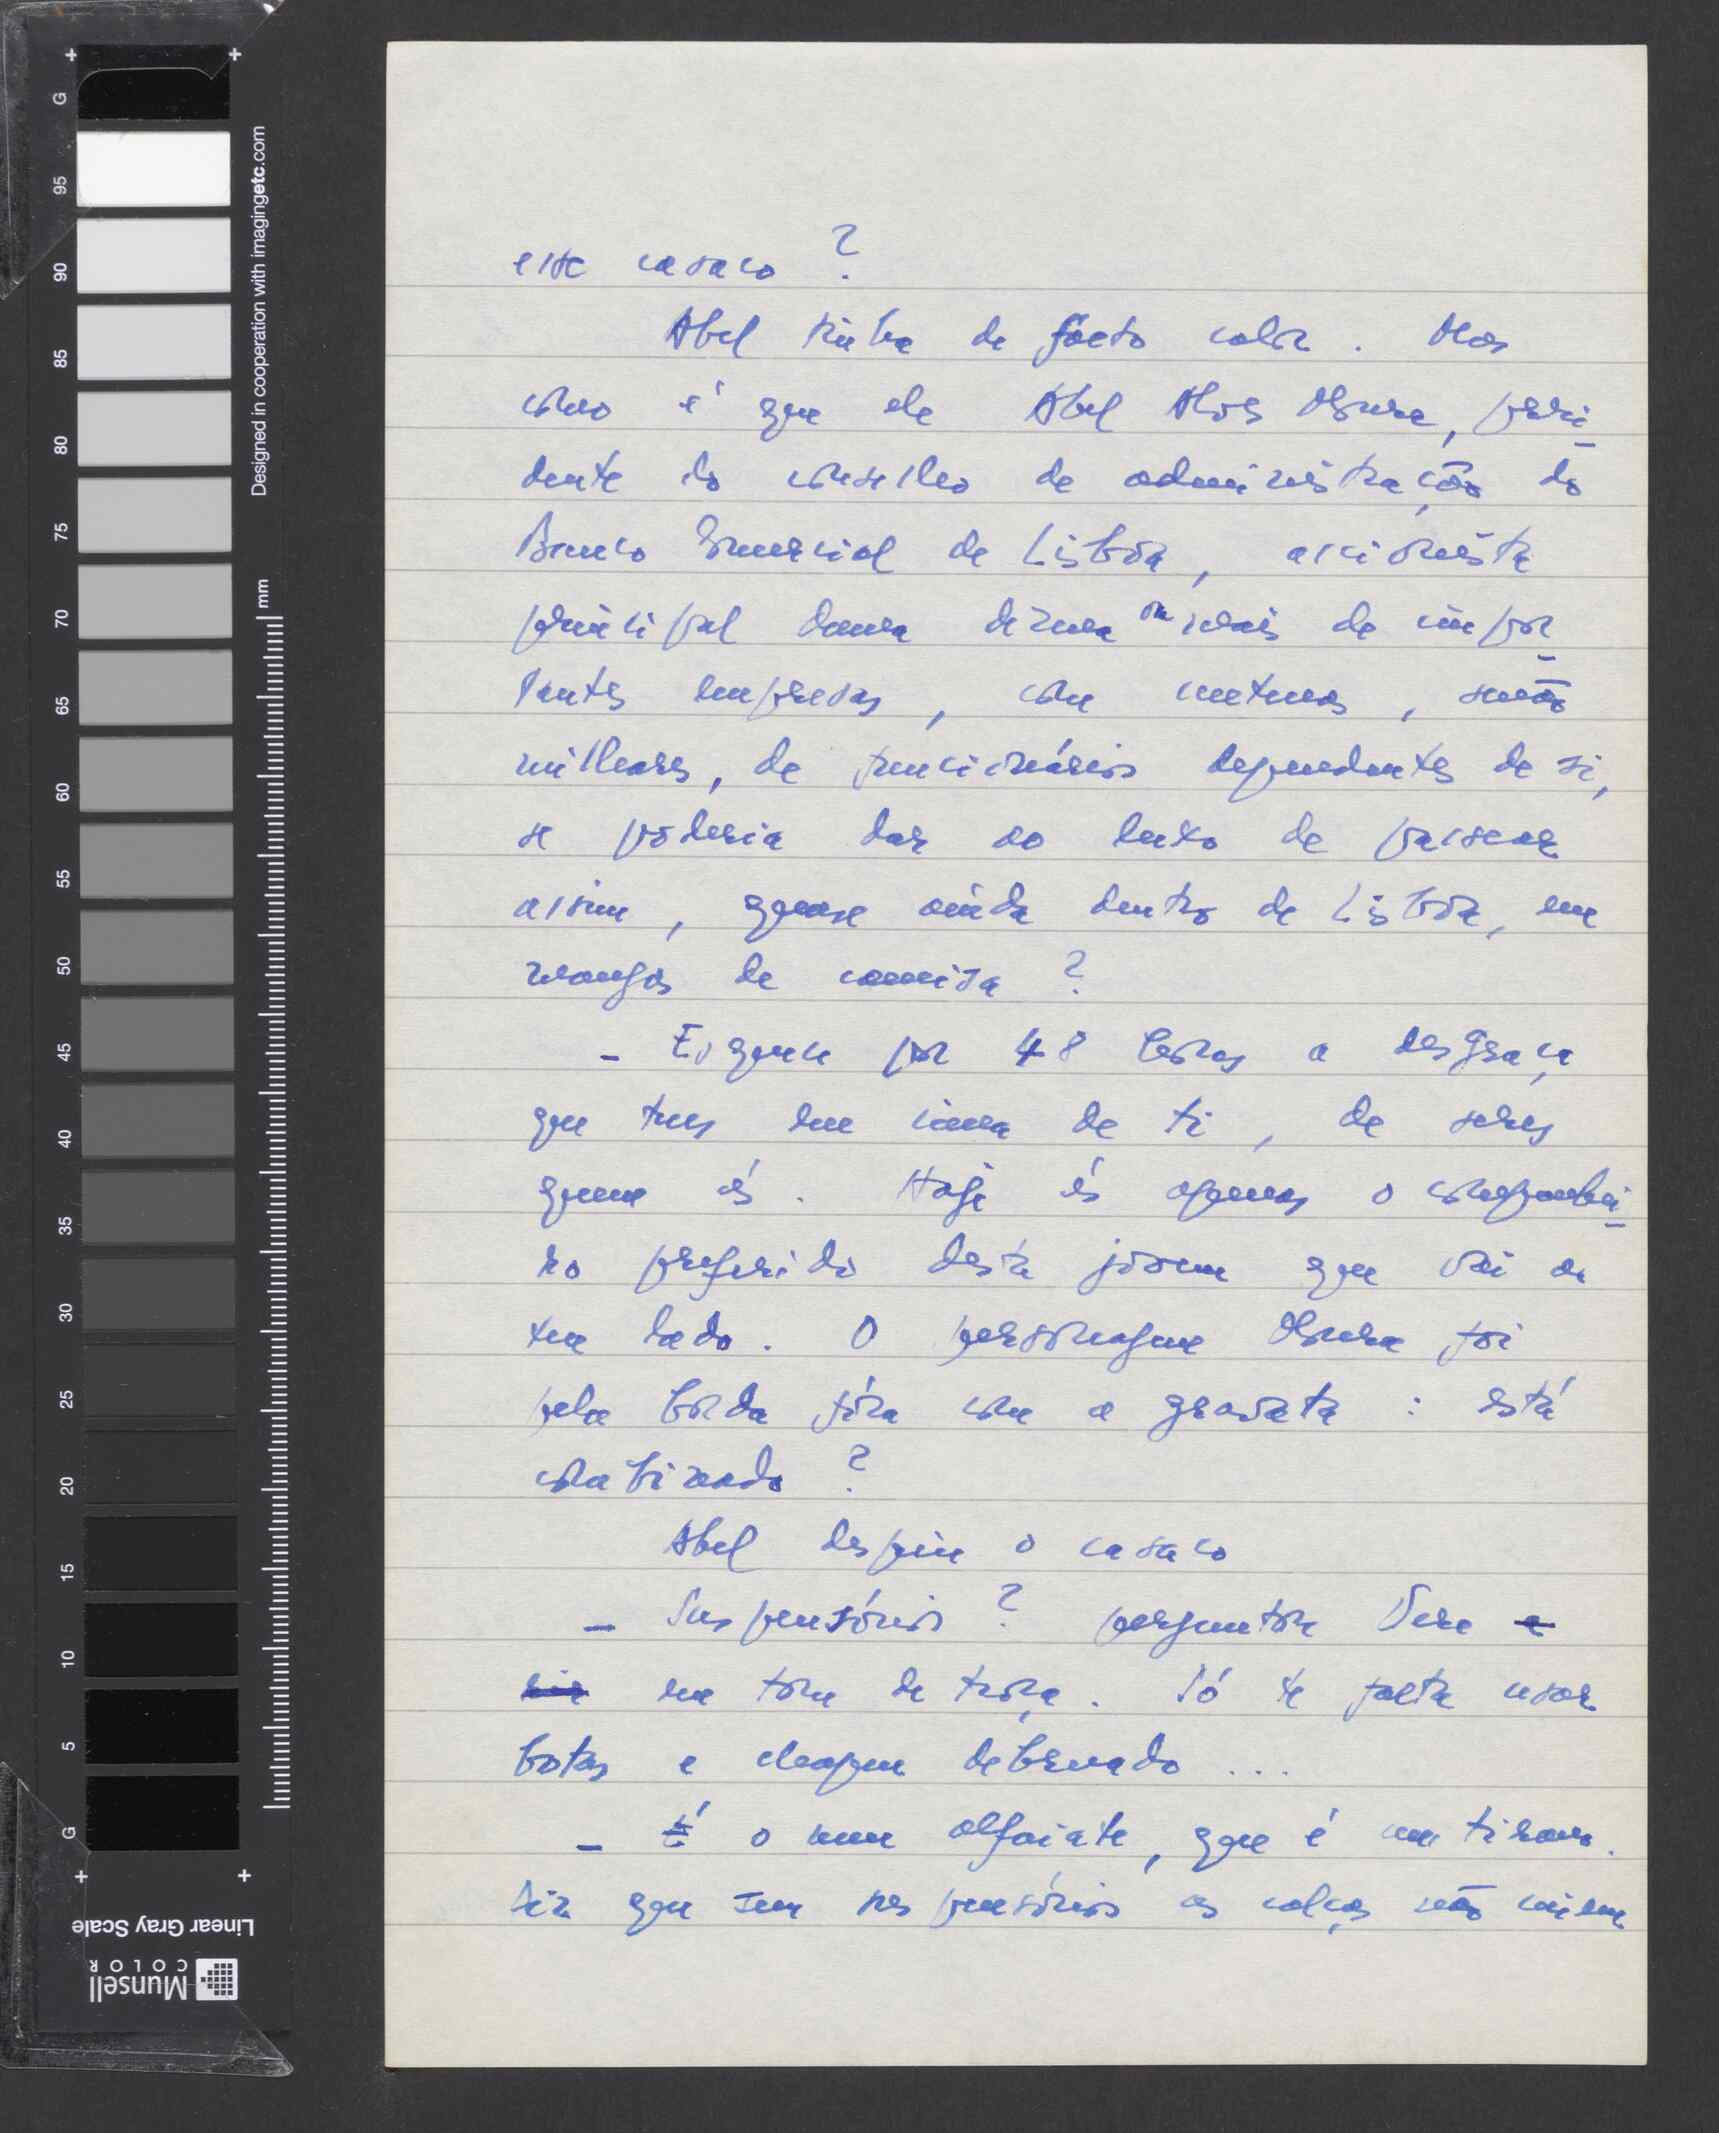 esse casaco ?
Abel tinha de facto calor. Mas
como é que ele Abel Moura, presi-
dente do conselho de administração do
Banco Comercial de Lisboa, accionista
principal duma dezena ou mais de impor-
tantes empresas, com centenas, senão
milhares, de funcionários dependentes de si,
se poderia dar ao luxo de passear
assim, quase ainda dentro de Lisboa, em
mangas de camisa ?
- Esquece por 48 horas a desgraça
que tens em cima de ti, de seres
quem és. Hoje és apenas o companhei-
ro preferido desta jovem que vai a
teu lado. O personagem Moura foi
pela borda fóra com a gravata : está
combinado ?
Abel despiu o casaco
- Suspensórios ? perguntou Vera e
em tom de troça. Só te falta usar
botas e chapeu debruado ...
- É o meu alfaiate, que é um tirano.
Diz que sem suspensórios as calças não caiem
G 95 90 85 80 75 70 65 60 55 50 45 40 35 30 25 20 15 10 5 G
mm
Designed in cooperation with imagingetc.com
Linear Gray Scale
Munsell
COLOR